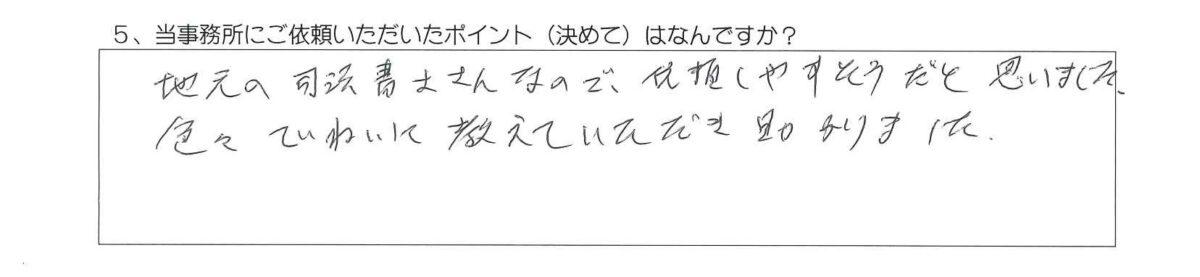 5、当事務所にご依頼いただいたポイント（決めて）はなんですか？
地元の司法書士さんなので、依頼しやすそうだと思いました。
色々ていねいに教えていただき助かりました。